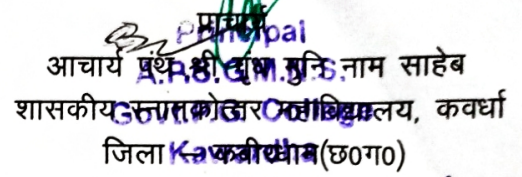 प्राचार्य
Principal
आचार्य पंथ श्री गृंध मुनि नाम साहेब
A.P.S.G.M.N.S.
शासकीय स्नातकोत्तर महाविद्यालय, कवर्धा
Govt. P.G. College
जिला – कबीरधाम(छ0ग0)
Kawardha